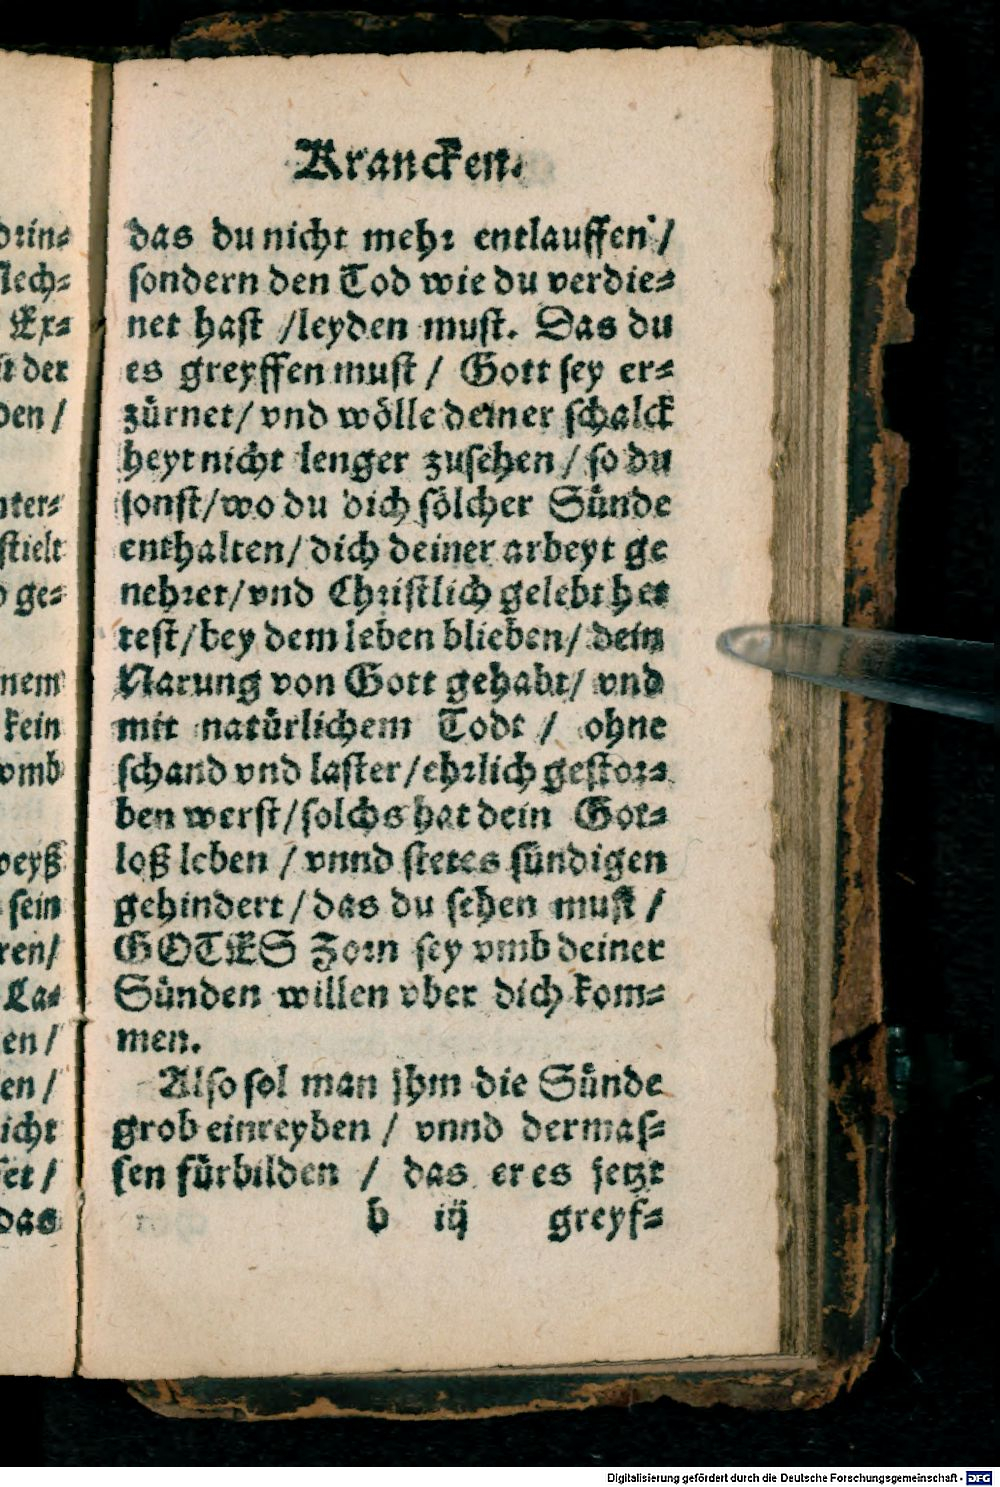 Krancken.
das du nicht mehr entlauffen /
sondern den Tod wie du verdie-
net hast /leyden must. Das du
es greyffen must / Gott sey er-
zürnet/ vnd wölle deiner schalck
heyt nicht lenger zusehen / so du
sonst/wo du dich sölcher Sünde
enthalten/ dich deiner arbeyt ge
nehret/vnd Christlich gelebt het
test/bey dem leben blieben/ dein
Narung von Gott gehabt/ vnd
mit natürlichem Todt / ohne
schand vnd laster/ehrlich gestor-
ben werst/solchs hat dein Got-
loß leben / vnnd stetes sündigen
gehindert/das du sehen must /
GOTES Zorn sey vmb deiner
Sünden willen vber dich kom-
men.
Also sol man jhm die Sünde
grob einreyben / vnnd dermas-
sen fürbilden / das er es jetzt
b iij greyf-
drin-
lech-
Er-
st der
den /
nter-
stielt
ge-
nem
kein
vmb
weyß
sein
ren/
La-
en /
en /
icht
et /
das
Digitalisierung gefördert durch die Deutsche Forschungsgemeinschaft - DFG